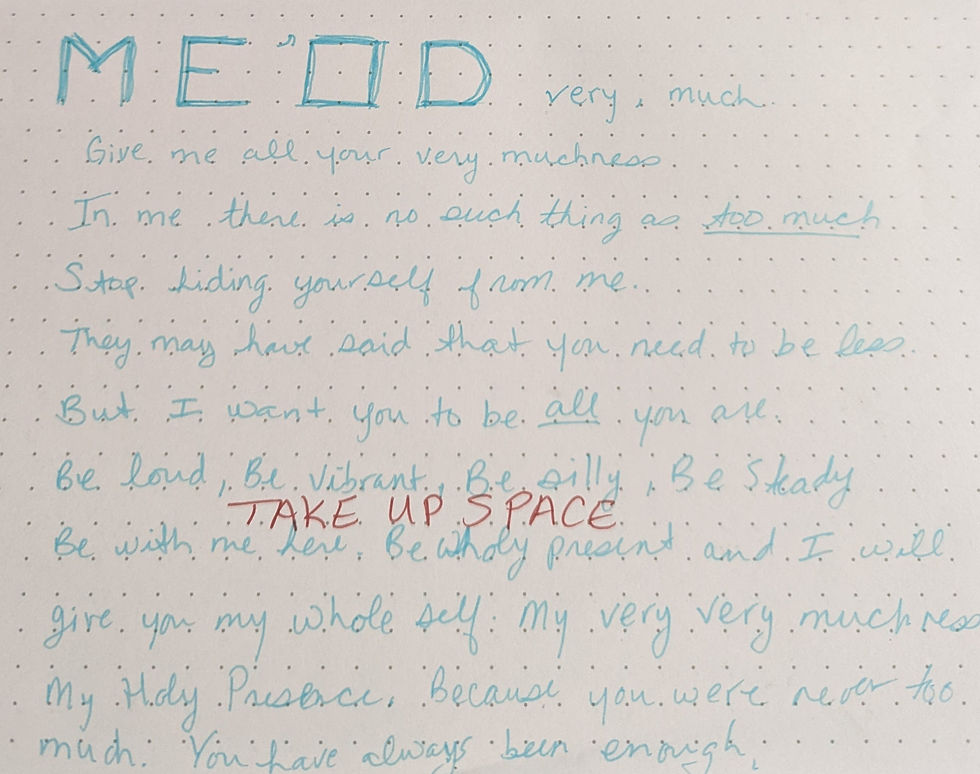 ME'OD very, much
Give me all your very muchness
In me there is no such thing as too much
Stop hiding yourself from me.
They may have said that you need to be less
But I want you to be all you are.
Be loud, Be vibrant, Be silly, Be Steady
TAKE UP SPACE
Be with me here. Be wholy present and I will
give you my whole self. My very very muchness
My Holy Presence. Because you were never too
much. You have always been enough.